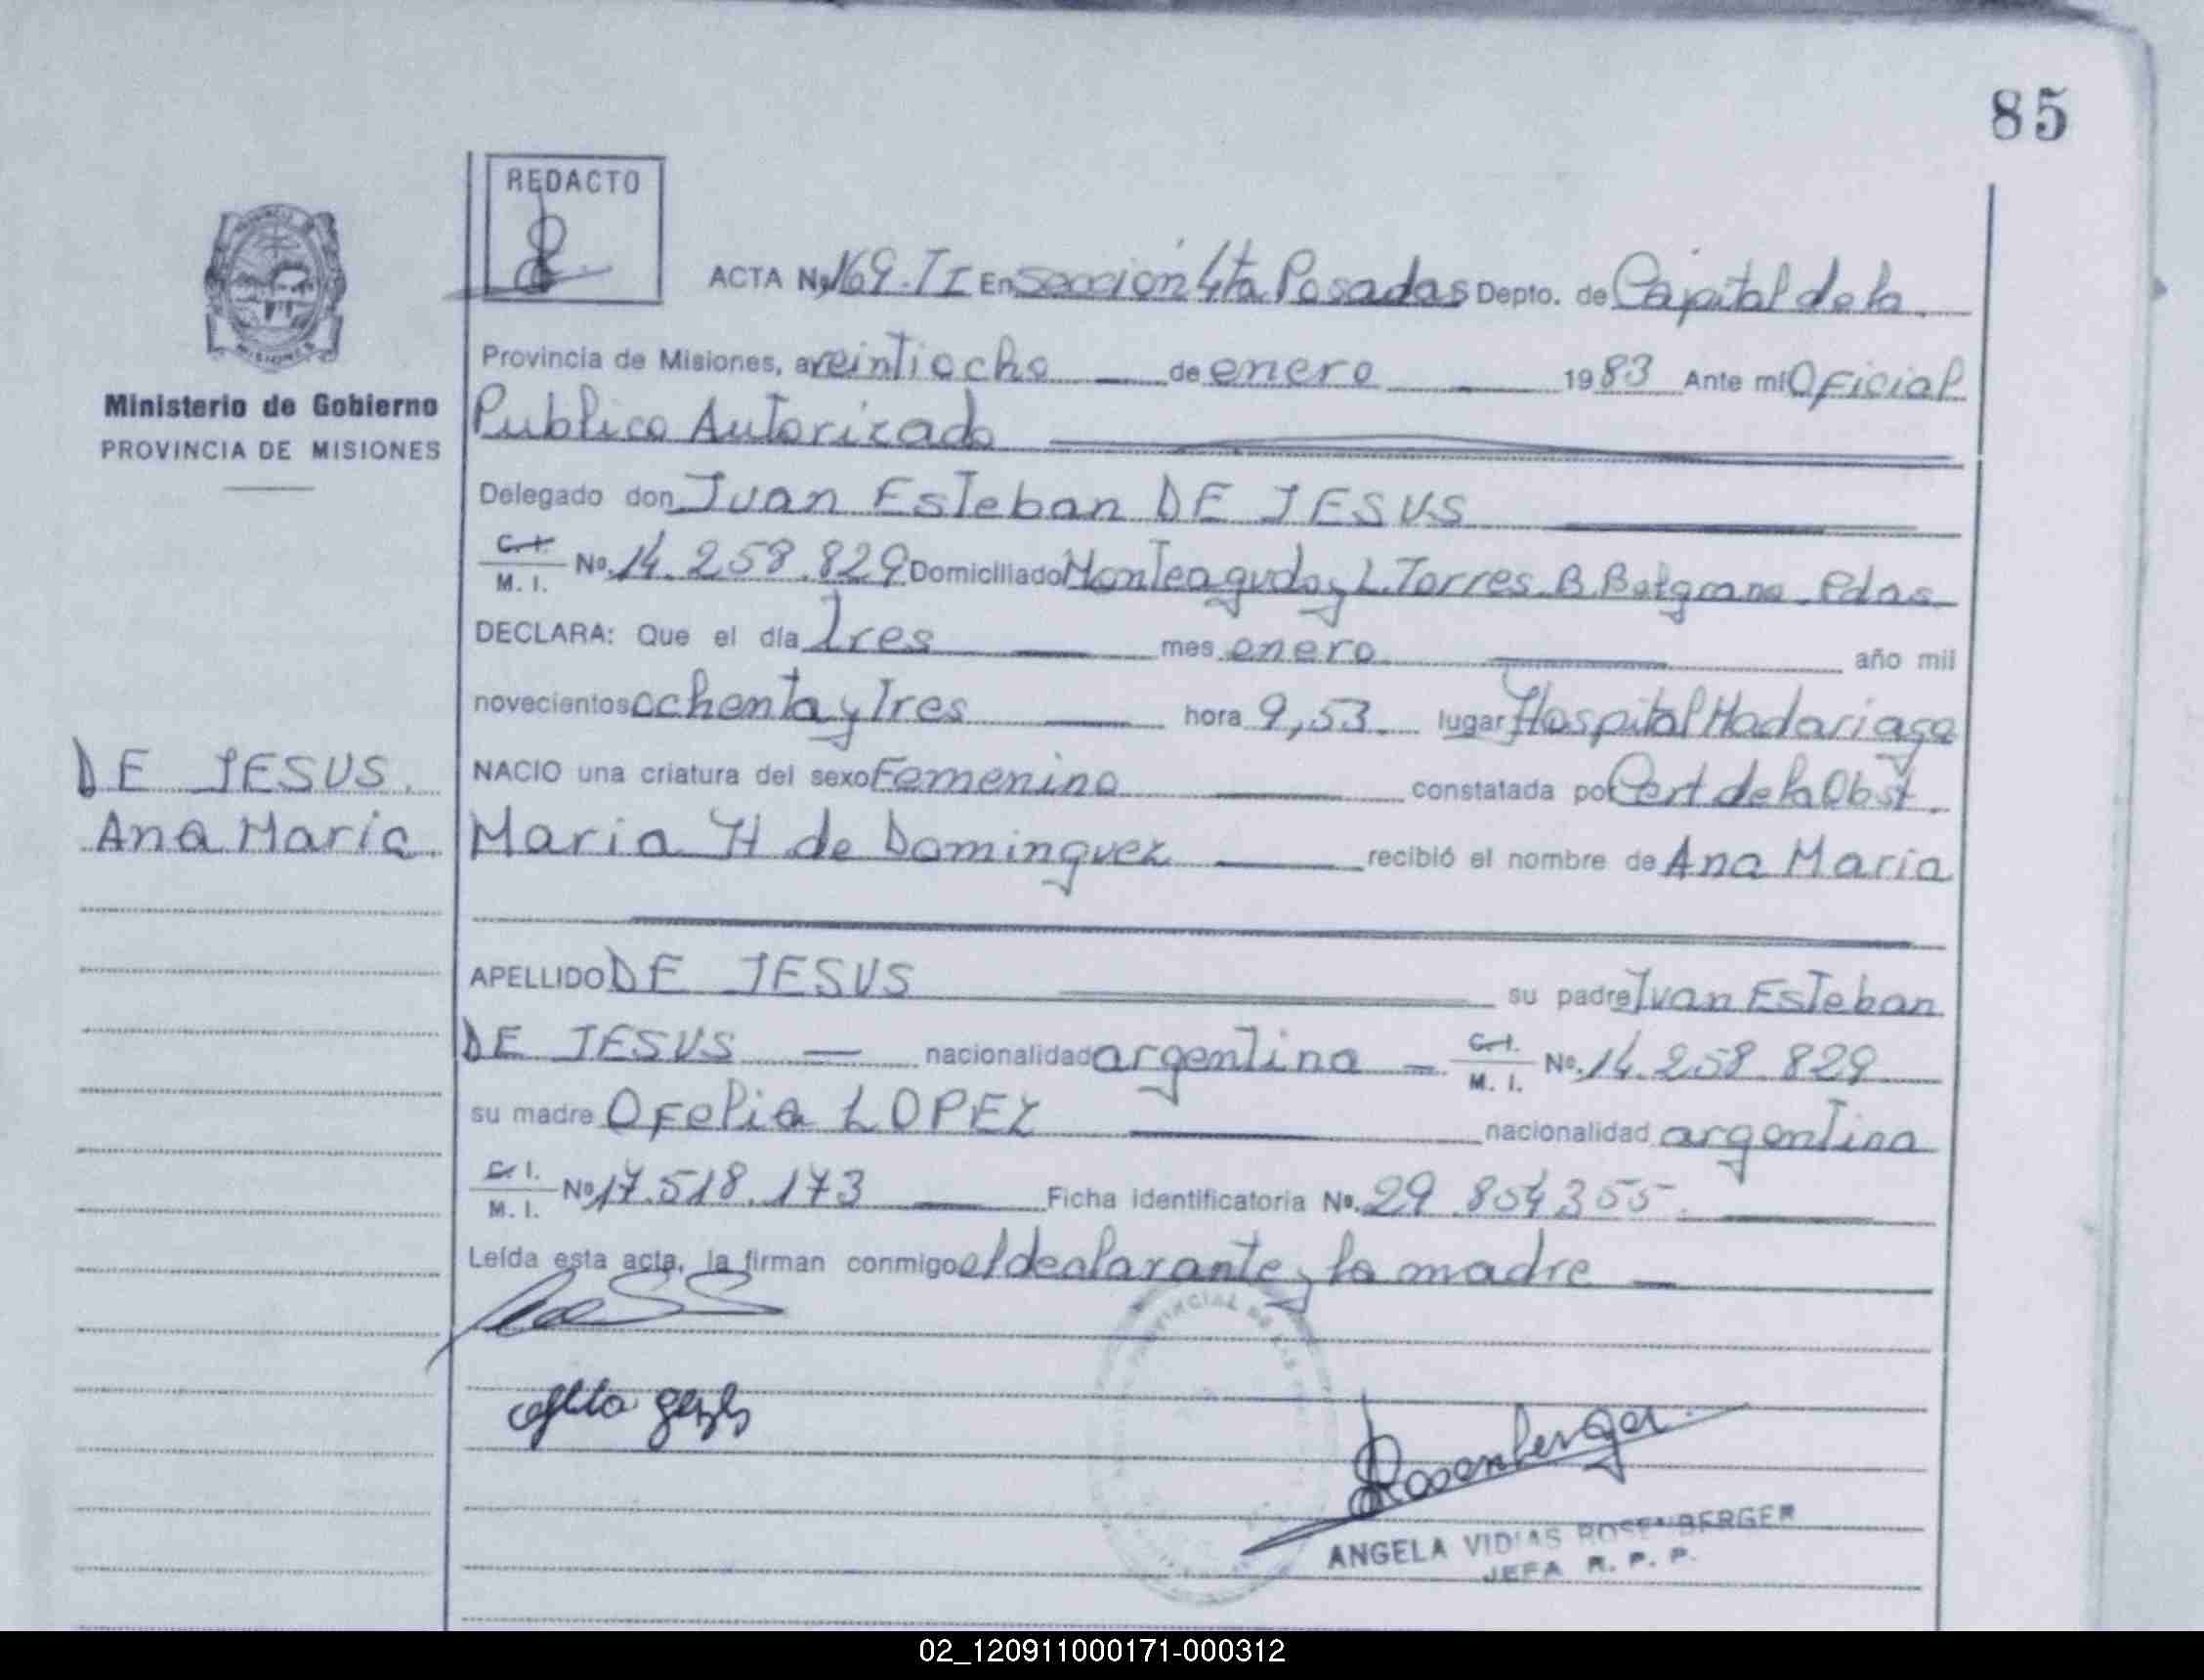 85
REDACTO
ACTA Nº 169. TI En Sección 4ta Posadas Depto. de Capital de la
Provincia de Misiones, a veintiocho de enero 1983 Ante mi Oficial
Publico Autorizado
Delegado don Juan Esteban DE JESUS
C. I. M. I. Nº. 14.258.829 Domiciliado Monteagudo y L. Torres B. Belgrano Pdas
DECLARA: Que el día Tres mes enero año mil
novecientos ochenta y Tres hora 9,53. lugar Hospital Madariaga
NACIO una criatura del sexo Femenino constatada por Cert de la Obst.
Maria H de Dominguez recibió el nombre de Ana Maria
APELLIDO DE JESUS su padre Juan Esteban
DE JESUS nacionalidad argentina C. I. M. I. Nº. 14.258.829
su madre Ofelia LOPEZ nacionalidad argentina
C. I. M. I. Nº 17.518.173 Ficha identificatoria Nº. 29.854355.
Leída esta acta, la firman conmigo el declarante y la madre
Rosenberger
ANGELA VIDIAS ROSENBERGER
JEFA R. P. P.
MISIONES
Ministerio de Gobierno
PROVINCIA DE MISIONES
DE JESUS.
Ana Maria
02_120911000171-000312